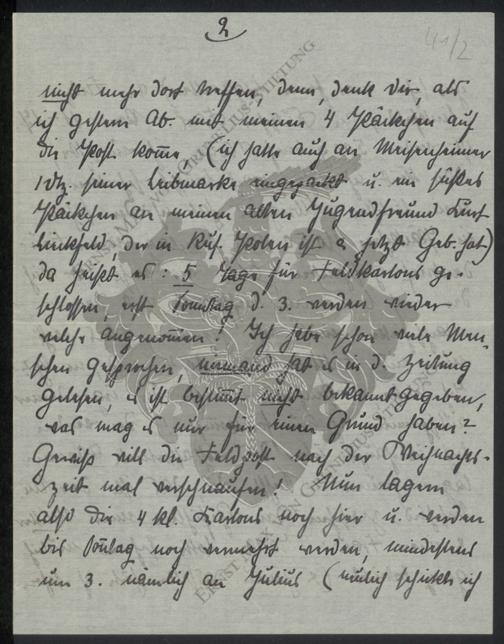 2
41/2
nicht mehr dort treffen, denn, denk Dir, als
ich gestern Ab. mit meinen 4 Päckchen auf
die Post komme (ich hatte auch an Meisenheimer
1 Dtz. seiner Leibmarke eingepackt u. ein süßes
Päckchen an meinen alten Jugendfreund Kurt
Linkfeld, der in Russ. Polen ist & jetzt Geb. hat)
da heißt es: 5 Tage für Feldkartons ge-
schlossen, erst Sonntag d. 3. werden wieder
welche angenommen! Ich habe schon viele Men-
schen gesprochen, niemand hat es in d. Zeitung
gelesen, es ist bestimmt nicht bekannt gegeben,
was mag es nur für einen Grund haben?
Gewiß will die Feldpost nach der Weihnachts-
zeit mal verschnaufen! Nun lagern
also die 4 kl. Kartons noch hier u. werden
bis Sonntag noch vermehrt werden, mindestens
um 3. nämlich an Julius (neulich schickte ich
ERNST MAX VON GRUNELIUS-STIFTUNG